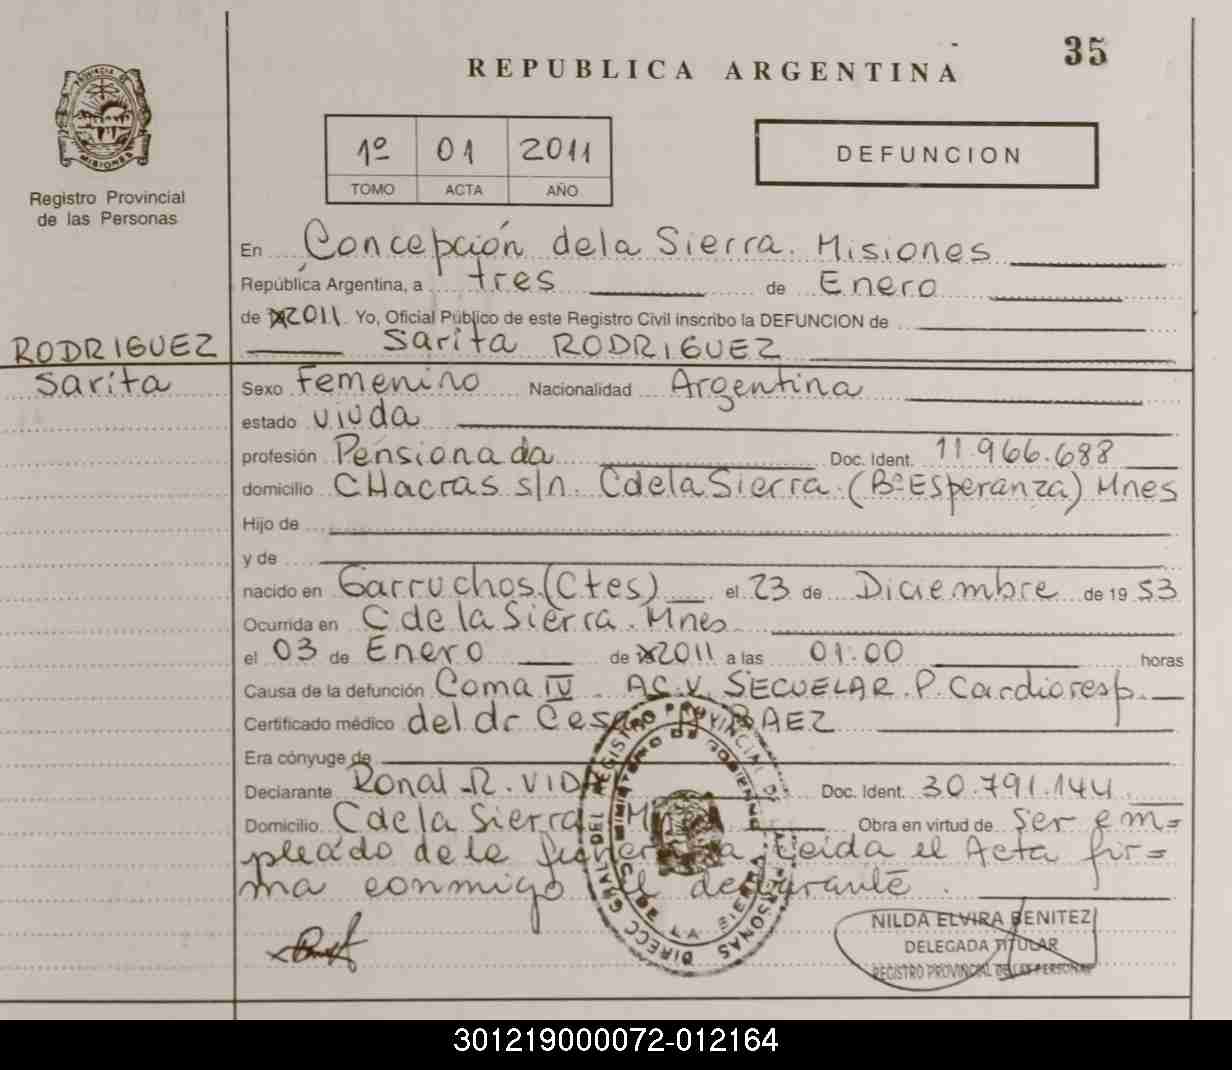 35
REPUBLICA ARGENTINA
PROVINCIA DE MISIONES
Registro Provincial
de las Personas
1º 01 2011
TOMO ACTA AÑO
DEFUNCION
En Concepción dela Sierra. Misiones
República Argentina, a tres de Enero
de 2011. Yo, Oficial Público de este Registro Civil inscribo la DEFUNCION de
RODRIGUEZ
Sarita RODRIGUEZ
Sarita
Sexo Femenino Nacionalidad Argentina
estado viuda
profesión Pensionada Doc. Ident. 11.966.688
domicilio CHacras s/n. CdelaSierra. (Bº Esperanza) Mnes
Hijo de
y de
nacido en Garruchos. (Ctes) el 23 de Diciembre de 19 53
Ocurrida en C de la Sierra. Mnes
el 03 de Enero de 2011 a las 01:00 horas
Causa de la defunción Coma IV. AC.V. SECUELAR. P. Cardioresp.
Certificado médico del dr. BAEZ
Era cónyuge de
Declarante Ronal R. Doc. Ident. 30.791.144
Domicilio CdelaSierra Obra en virtud de ser em=
pleado dela Leida el Acta fir=
ma conmigo el declarante.
NILDA ELVIRA BENITEZ
DELEGADA TITULAR
REGISTRO PROVINCIAL DE LAS PERSONAS
301219000072-012164